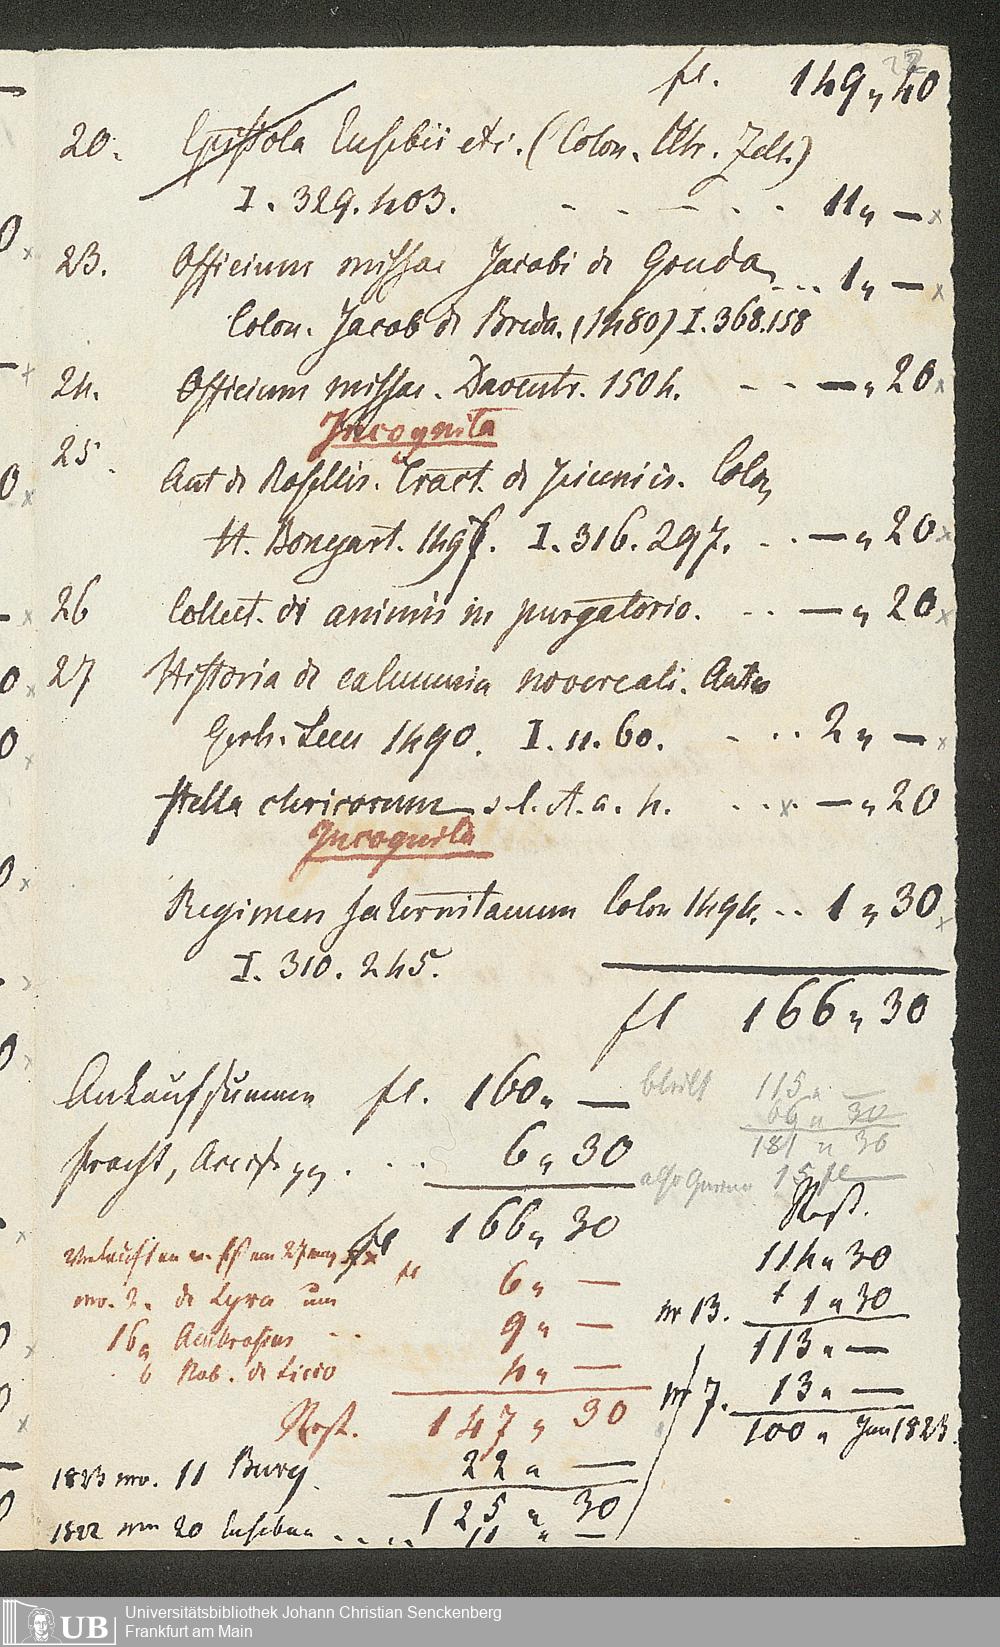 fl. 149 „ 40
20. Epistola Eusebii etc. (Colon. Ulr. Zell.)
I. 329. 403. - - - - - 11 „ —
23. Officium missae Jacobi de Gouda
... 1 „ —
Colon. Jacob de Breda. (1480) I. 368.158
24. Officium missae. Daventr. 1504. - - — „ 20
Incognita
25. Ant de Rosellis. Tract. de Colon,
H. Bongart. I. 316. 297. - . — „ 20
26 Collect. de animis in purgatorio. - .. — „ 20
27 Historia de calumnia novercali. Antw
Gerh. Leeu 1490. I. 11. 60. - ... 2 „ —
Stella clericorum s. l. & a. 4. ... — „ 20
Incognita
Regimen Colon 1494. .. 1 „ 30
I. 310. 245.
fl 166 „ 30
Ankaufsumme fl. 160 „ —
Fracht, Accis . . . 6 „ 30
fl 166 „ 30
bleibt 115 „ —
66 „ 30
181 „ 30
also 15 fl
Rest.
114 „ 30
nr 13. + 1 „ 30
113 „ —
nr 7. 13 „ —
100 „ Jan 1823.
fl 6 „ —
no. 2. de Lyra um
16 „ Ambrosius - - 9 „ —
6 Rob. de Licio 4 „ —
Rest. 147 „ 30
1823 no. 11 Burg. 22 „ —
125 „ 30
1822 20 . . . . 11 „ —
Universitätsbibliothek Johann Christian Senckenberg
Frankfurt am Main
UB